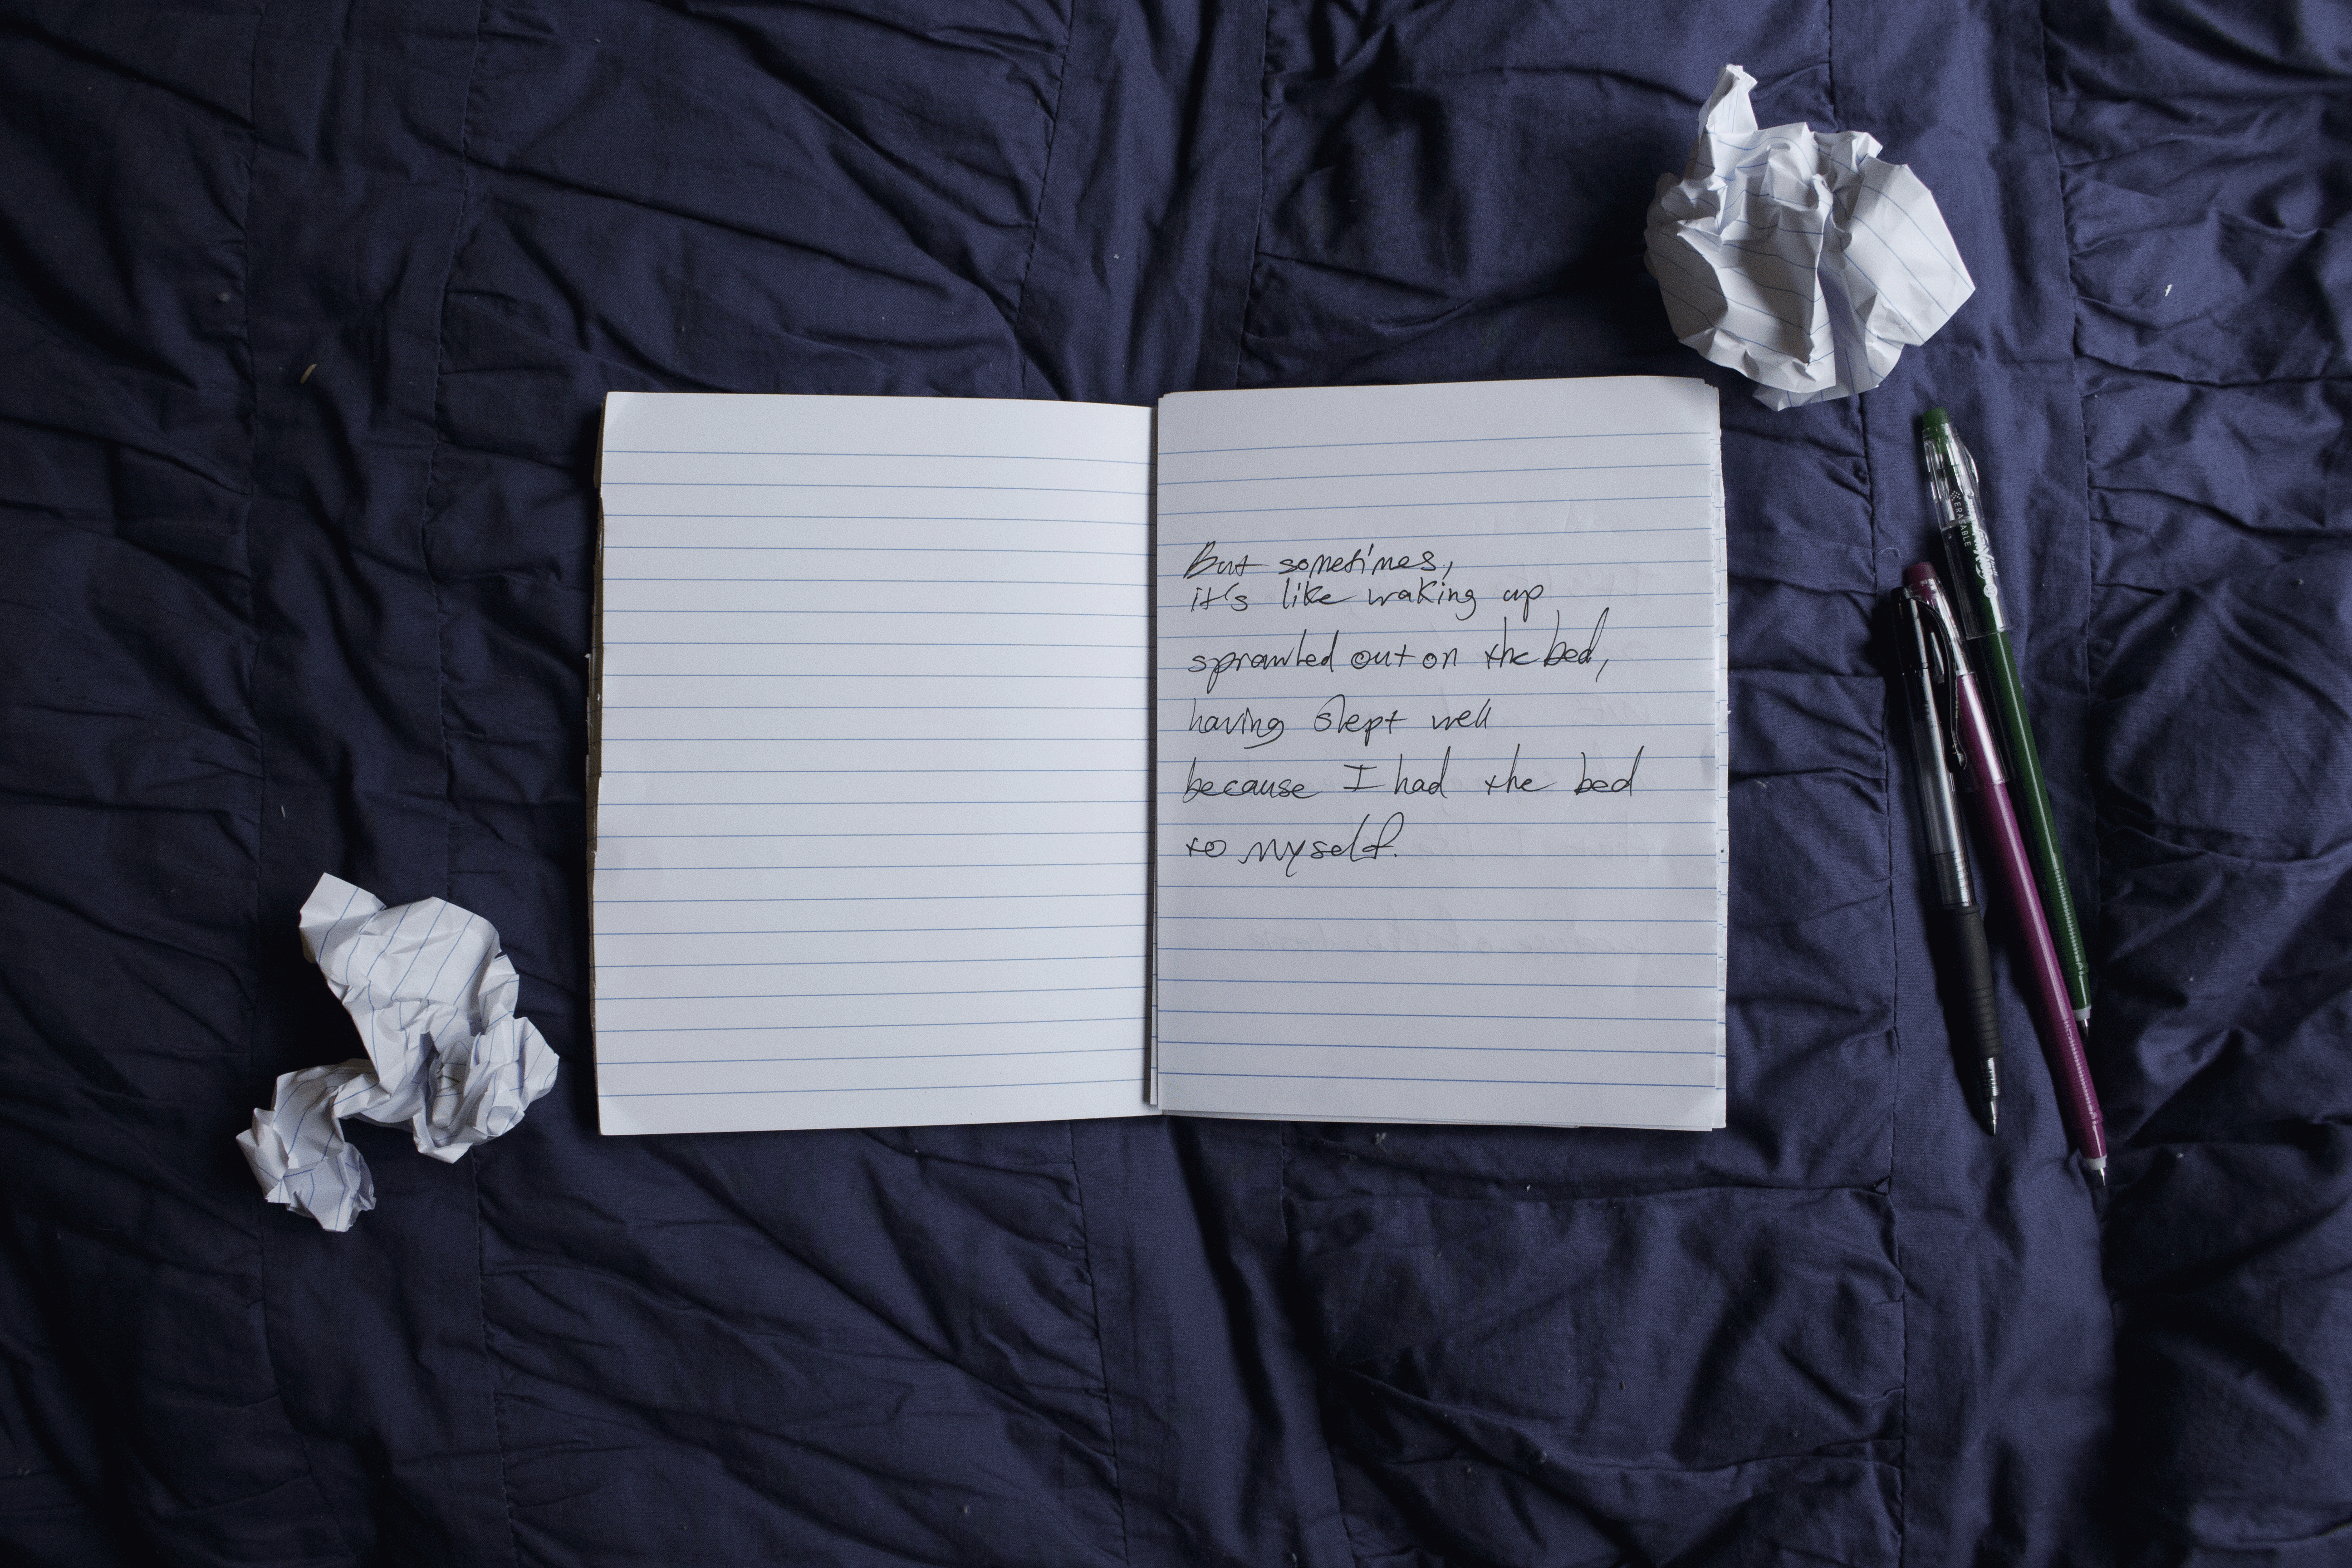 But sometimes,
it's like waking up
sprawled out on the bed,
having slept well
because I had the bed
to myself.
ERASABLE